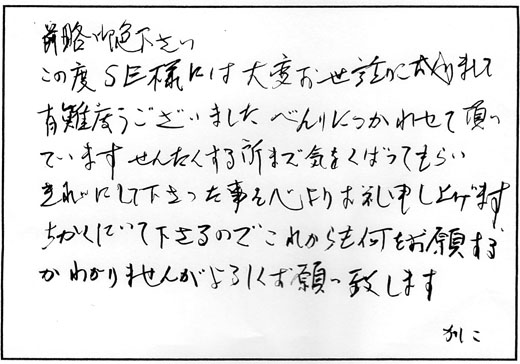 前略御免下さい
この度SE様には大変お世話になりまして
有難度うございました べんりにつかわせて頂っ
ています せんたくする所まで気をくばってもらい
きれいにして下さった事を心よりお礼申し上げます
ちかくにいて下さるのでこれからも何をお願する
かわかりませんがよろしくお願っ致します
かしこ